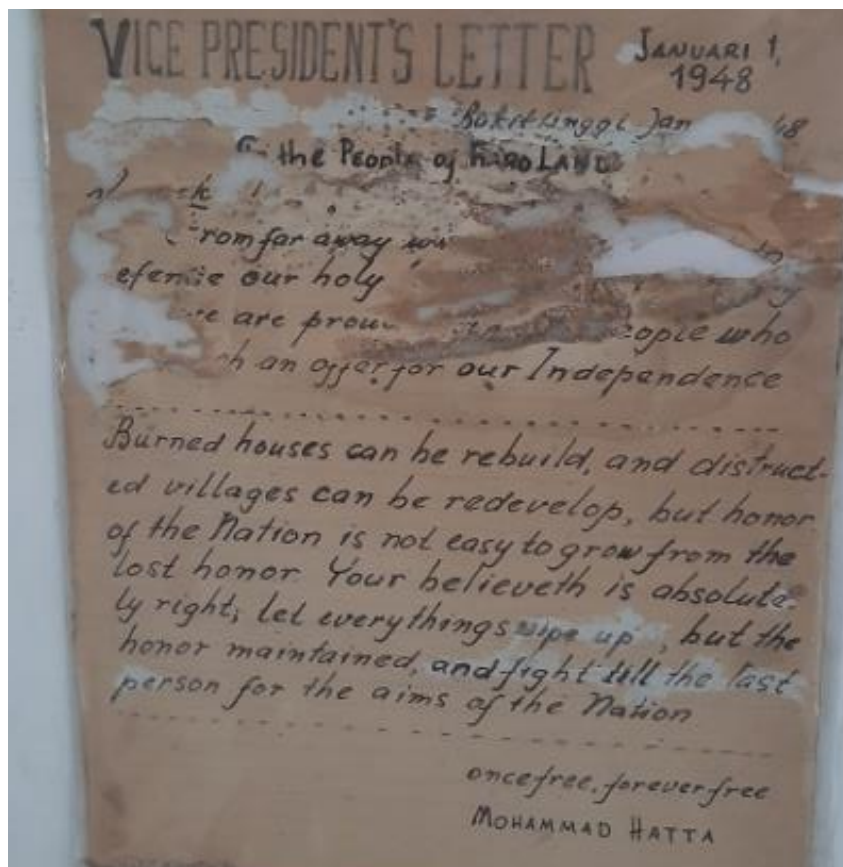 VICE PRESIDENT'S LETTER
JANUARI 1,
1948
Bukittinggi Jan 48
the PEOPLE of KARO LAND
from far away
our holy
are people who
an offer for our Independence
Burned houses can be rebuild, and distruct-
ed villages can be redevelop, but honor
of the Nation is not easy to grow from the
lost honor. Your believeth is absolute-
ly right; let everythings wipe up, but the
honor maintained, and fight till the last
person for the aims of the Nation
once free, forever free
MOHAMMAD HATTA